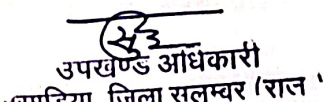 उपखण्ड अधिकारी
जिला सलम्बर (राज